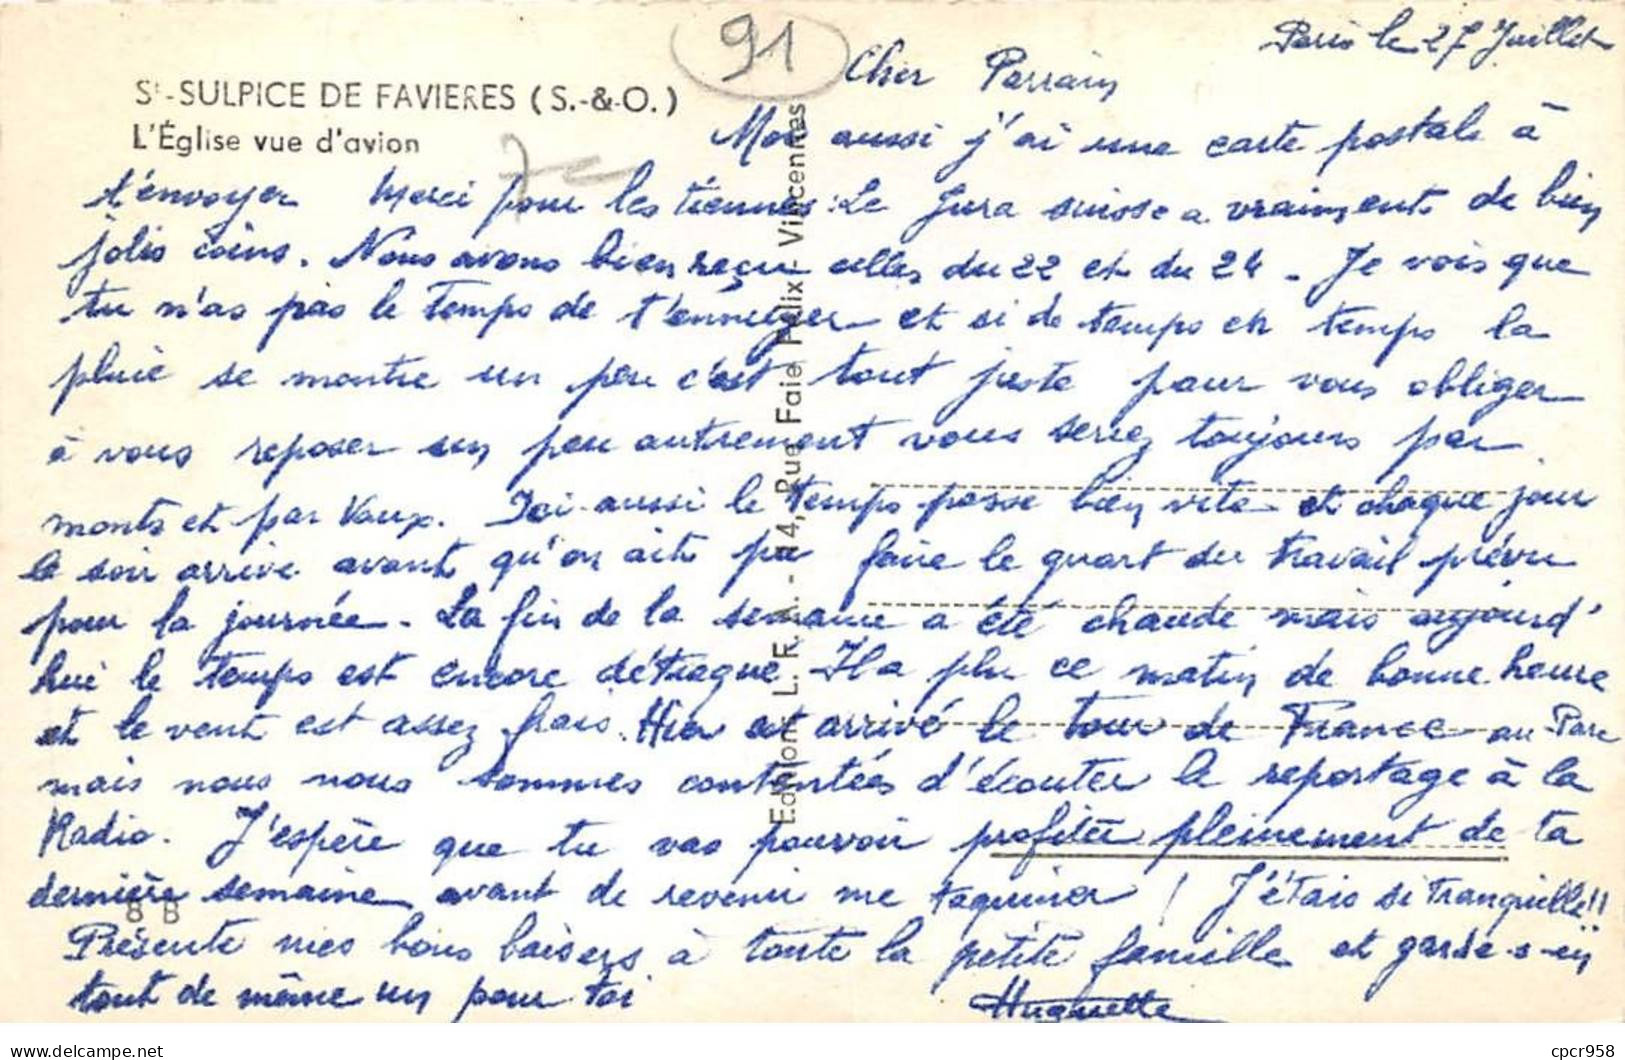 91
Paris le 27 Juillet
St-SULPICE DE FAVIERES (S.-&-O.)
L'Église vue d'avion
Cher Parrain
Moi aussi j'ai une carte postale à
t'envoyer Merci pour les tiennes. Le Jura suisse a vraiment de bien
jolis coins. Nous avons bien reçu celles du 22 et du 24. Je vois que
tu n'as pas le temps de t'ennuyer et si de temps en temps la
pluie se montre un peu c'est tout juste pour vous obliger
à vous reposer un peu autrement vous seriez toujours par
monts et par Vaux. Ici aussi le temps passe bien vite et chaque jour
le soir arrive avant qu'on ait pu faire le quart du travail prévu
pour la journée. La fin de la semaine a été chaude mais aujourd'
hui le temps est encore détraqué Il a plu ce matin de bonne heure
et le vent est assez frais. Hier est arrivé le tour de France au Parc
mais nous nous sommes contentées d'écouter le reportage à la
Radio. J'espère que tu vas pouvoir profiter pleinement de ta
dernière semaine avant de revenir me taquiner ! J'étais si tranquille!!
Présente mes bons baisers à toute la petite famille et garde-s-en
tout de même un pour toi
Huguette
Editions L. F. A. - 44, Rue Faie Félix - Vincennes
8 B
cpcr958
delcampe.net